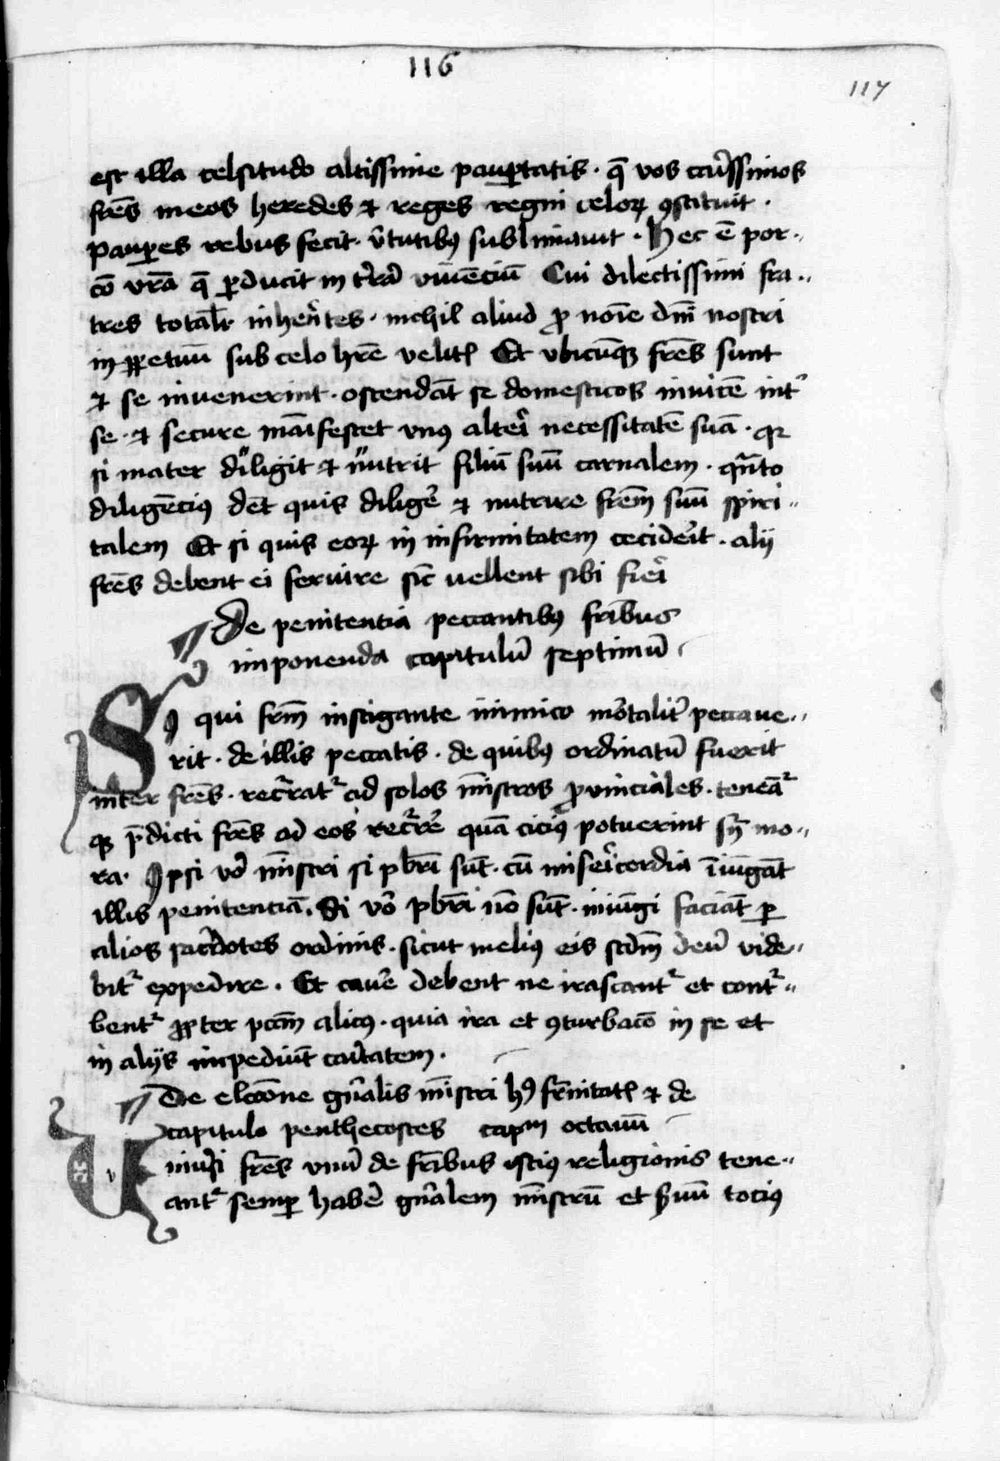 116
117
est illa celsitudo altissime paup̄tatis · q̄ vos carissimos
fr̄es meos heredes ⁊ reges regni celoꝝ ꝯstituit ·
paup̲es rebus fecit · v̄tutibꝰ sublimauit · Hec ē por-
cō vr̄a q̄ ꝑducit in t̄rā viuēciū Cui dilectissimi fra-
tres total̄r inher̄tes · nichil aliud ꝓ noīe dn̄i nostri
in ꝑpetuū sub celo hr̄e velitꝭ Et vbicūqꝫ fr̄es sunt
⁊ se invenerint · ostendāt se domesticos inuicē int̄
se · ⁊ secure māifestet vnꝰ alteri necessitatē suā · qꝛ
si mater diligit ⁊ nutrit filiū suū carnalem · qn̄to
diligēciꝰ det̄ quis diligē ⁊ nutrire frēm suū spiri-
talem Et si quis eoꝝ in infirmitatem cecider̄it · alij
fr̄es debent ei seruire sic̄ vellent sibi fieri
¶ De penitentia peccantibꝰ fr̄ibus
imponenda capitulū septimū
SI qui fr̄m instigante inimico mōtalit̄ peccaue-
rit · de illis peccatis · de quibꝰ ordinatū fuerit
inter fr̄es · recr̄rat᷑ ad solos mīstros ꝓvinciales · teneāt᷑
qꝫ p̄dicti fr̄es ad eos recr̄rē quā ciciꝰ potuerint sn̄ mo-
ra · Ipsi vō mīstri si pbr̄i sūt · cū misericordia īiūgāt
illis penitenciā. Si vō pbr̄i nō sūt · iniūgi faciāt ꝑ
alios sac̄dotes ordinis · sicut meliꝰ eis scd̄m deū vide-
bit᷑ expedire . Et cauē debent ne irascant᷑ et cont᷑-
bent᷑ ꝓpter pcc̄m alicꝰ · quia ira et ꝯturbacō in se et
in aliis impediūt caritatem ·
¶ De elc̄cōne gn̄alis mīstri hꝰ fr̄nitatꝭ ⁊ de
capitulo penthecostes capm octauū
Vniūsi fr̄es vnū de fr̄ibus istiꝰ religionis tene-
ant᷑ semꝑ habē gn̄alem mīstrū et s̄uū tociꝰ